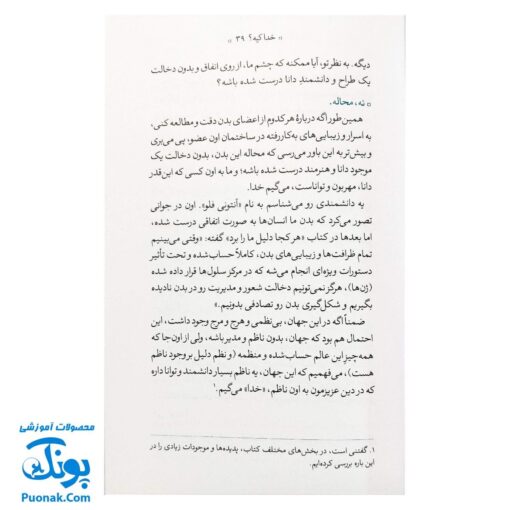 « خدا کیه؟ ۳۹ »
دیگه. به نظر تو، آیا ممکنه که چشم ما، از روی اتفاق و بدون دخالت
یک طراح و دانشمندِ دانا درست شده باشه؟
نه، محاله.
همین‌طور اگه دربارهٔ هر کدوم از اعضای بدن دقت و مطالعه کنی،
به اسرار و زیبایی‌های به‌کاررفته در ساختمان اون عضو، پی می‌بری
و بیش‌تر به این باور می‌رسی که محاله این بدن، بدون دخالت یک
موجود دانا و هنرمند درست شده باشه؛ و ما به اون کسی که این‌قدر
دانا، مهربون و تواناست، می‌گیم خدا.
یه دانشمندی رو می‌شناسم به نام «آنتونی فلو». اون در جوانی
تصور می‌کرد که بدن ما انسان‌ها به صورت اتفاقی درست شده،
اما بعدها در کتاب «هر کجا دلیل ما را برد» گفته: «وقتی می‌بینیم
تمام ظرافت‌ها و زیبایی‌های بدن، کاملاً حساب‌شده و تحت تأثیر
دستورات ویژه‌ای انجام می‌شه که در مرکز سلول‌ها قرار داده شده
(ژن‌ها)، هرگز نمی‌تونیم دخالت شعور و مدیریت رو در بدن نادیده
بگیریم و شکل‌گیری بدن رو تصادفی بدونیم.»
ضمناً اگه در این جهان، بی‌نظمی و هرج و مرج وجود داشت، این
احتمال هم بود که جهان، بدون ناظم و مدیر باشه، ولی از اون‌جا که
همه‌چیزِ این عالم حساب‌شده و منظمه (و نظم دلیل بر وجود ناظم
هست)، می‌فهمیم که این جهان، یه ناظم بسیار دانشمند و توانا داره
که در دین عزیزمون به اون ناظم، «خدا» می‌گیم.۱
۱. گفتنی است، در بخش‌های مختلف کتاب، پدیده‌ها و موجودات زیادی را در
این باره بررسی کرده‌ایم.
محصولات آموزشی
پونک
Puonak.Com